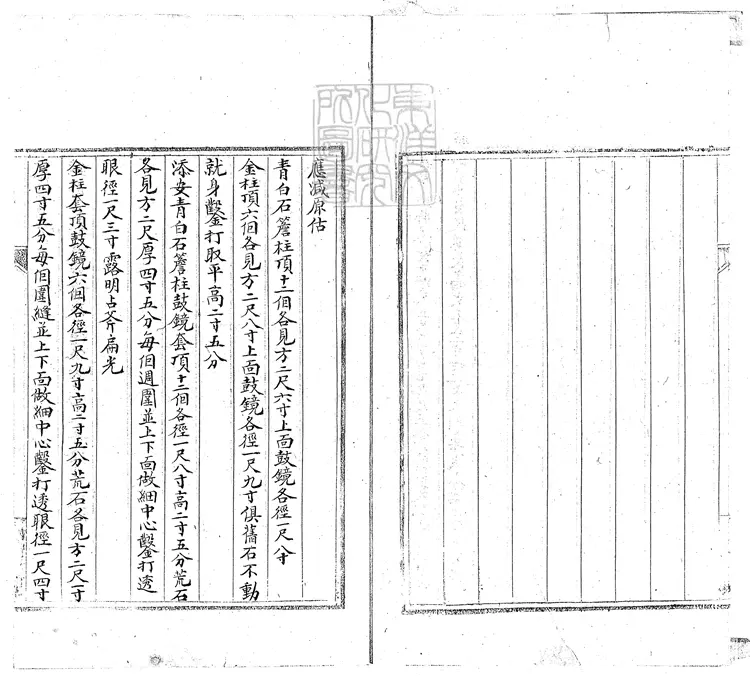 應減原估
青白石簷柱頂十二個各見方二尺六寸上面鼓鏡各徑一尺八寸
金柱頂六個各見方二尺八寸上面鼓鏡各徑一尺九寸俱舊石不動
就身鑿打取平高二寸五分
添安青白石簷柱鼓鏡套頂十二個各徑一尺八寸高二寸五分荒石
各見方二尺厚四寸五分每個週圍並上下面做細中心鑿打透
眼徑一尺三寸露明占斧扁光
金柱套頂鼓鏡六個各徑一尺九寸高二寸五分荒石各見方二尺一寸
厚四寸五分每個圍縫並上下面做細中心鑿打透眼徑一尺四寸
東洋文
化研究
所圖書